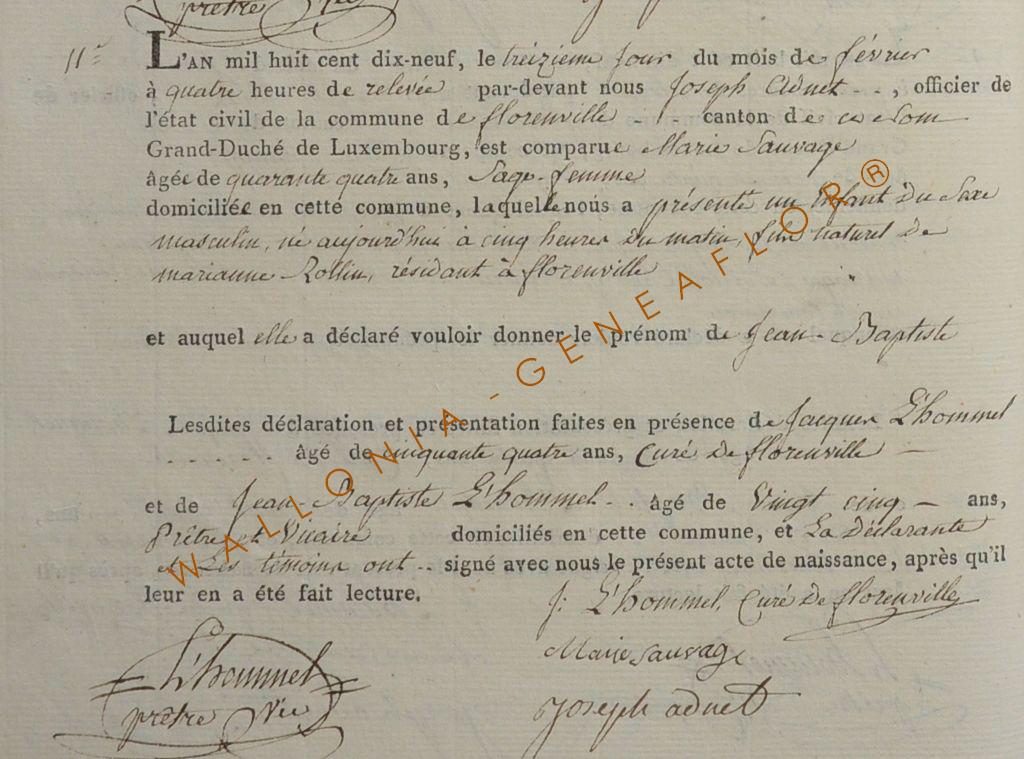 prêtre Vic
11e
L'AN mil huit cent dix-neuf, le treizieme jour du mois de février
à quatre heures de relevée par-devant nous Joseph Adnet - - , officier de
l'état civil de la commune de florenville - - canton de ce Nom
Grand-Duché de Luxembourg, est comparue Marie Sauvage
âgée de quarante quatre ans, Sage-femme
domiciliée en cette commune, laquelle nous a présenté un Enfant du Sexe
masculin, né aujourd'hui à cinq heures du matin, fils naturel de
marianne Rollin, résidant à florenville
et auquel elle a déclaré vouloir donner le prénom de Jean-Baptiste
Lesdites déclaration et présentation faites en présence de Jacques L'hommel
- - - - - - âgé de cinquante quatre ans, Curé de florenville -
et de Jean-Baptiste L'hommel - - âgé de Vingt cinq - ans,
Prêtre et Vicaire domiciliés en cette commune, et La Déclarante
et Les témoins ont - - signé avec nous le présent acte de naissance, après qu'il
leur en a été fait lecture.
J: L'hommel, Curé de florenville
Marie sauvage
L'hommel
prêtre Vic
joseph adnet
WALLONIA-GENEAFLOR®